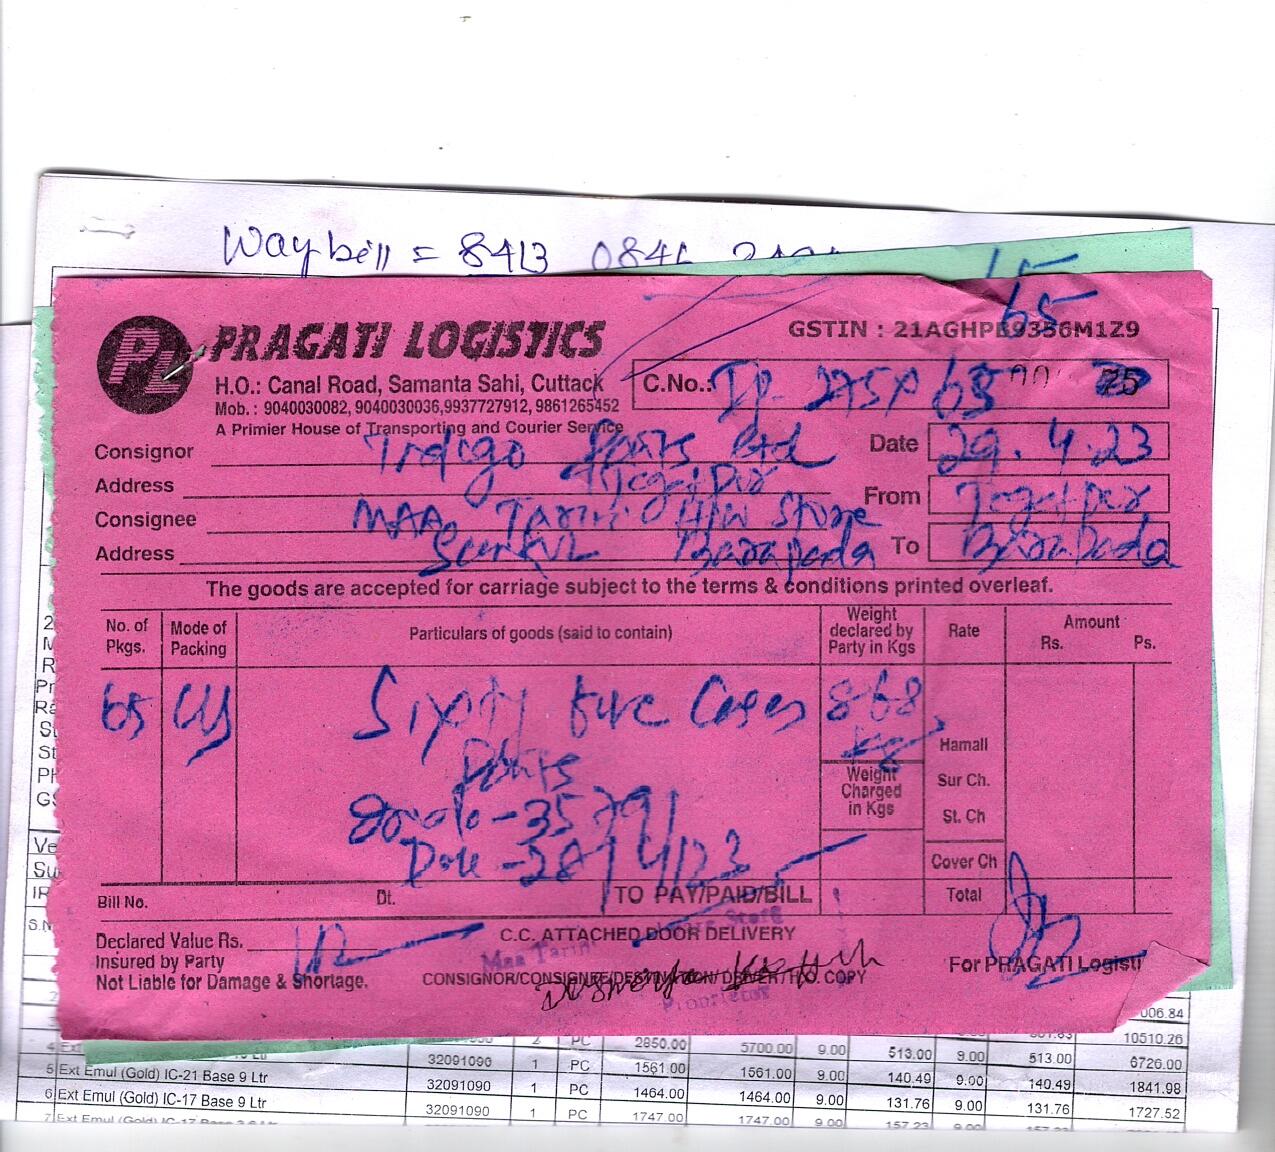 Waybill = 8413 0846
65
65
PL PRAGATI LOGISTICS
GSTIN : 21AGHPB9356M1Z9
H.O.: Canal Road, Samanta Sahi, Cuttack
C.No.:
Mob.: 9040030082, 9040030036,9937727912, 9861265452
A Primier House of Transporting and Courier Service
Consignor Indigo Paints Ltd Date 29.4.23
Address Jagatpur From Jagatpur
Consignee MAA Tarini H/W Store
Address Barapada To Barapada
The goods are accepted for carriage subject to the terms & conditions printed overleaf.
No. of Pkgs. Mode of Packing Particulars of goods (said to contain) Weight declared by Party in Kgs Rate Amount Rs. Ps.
65 Sixty five Cases 868 Kg
Paints
Hamali
Weight Charged in Kgs
Sur Ch.
3579
St. Ch
Date - 28/4/23
Cover Ch
Bill No. Dt. TO PAY/PAID/BILL Total
Declared Value Rs.
C.C. ATTACHED DOOR DELIVERY
Maa Tarini
Insured by Party
For PRAGATI Logisti
Not Liable for Damage & Shortage.
CONSIGNOR/CONSIGNEE/DESTINATION/DRIVER/H.O. COPY
Proprietor
006.84
2 PC 2850.00 5700.00 9.00 513.00 9.00 513.00 10510.26
4 Ext 6726.00
5 Ext Emul (Gold) IC-21 Base 9 Ltr 32091090 1 PC 1561.00 1561.00 9.00 140.49 9.00 140.49 1841.98
6 Ext Emul (Gold) IC-17 Base 9 Ltr 32091090 1 PC 1464.00 1464.00 9.00 131.76 9.00 131.76 1727.52
7 Ext Emul (Gold) IC-17 Base 3.6 Ltr 32091090 1 PC 1747.00 1747.00 9.00 157.23 9.00